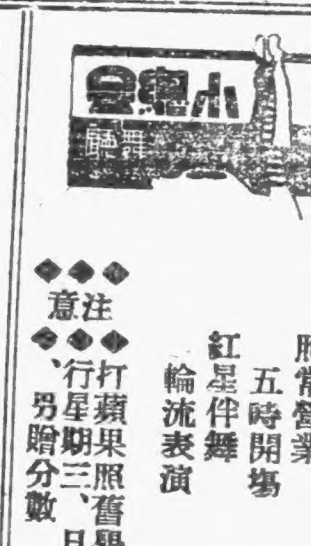 舞廳
常營業
五時開塲
紅星伴舞
輪流表演
注意
打蘋果照舊舉
行星期三、日
、另贈分數